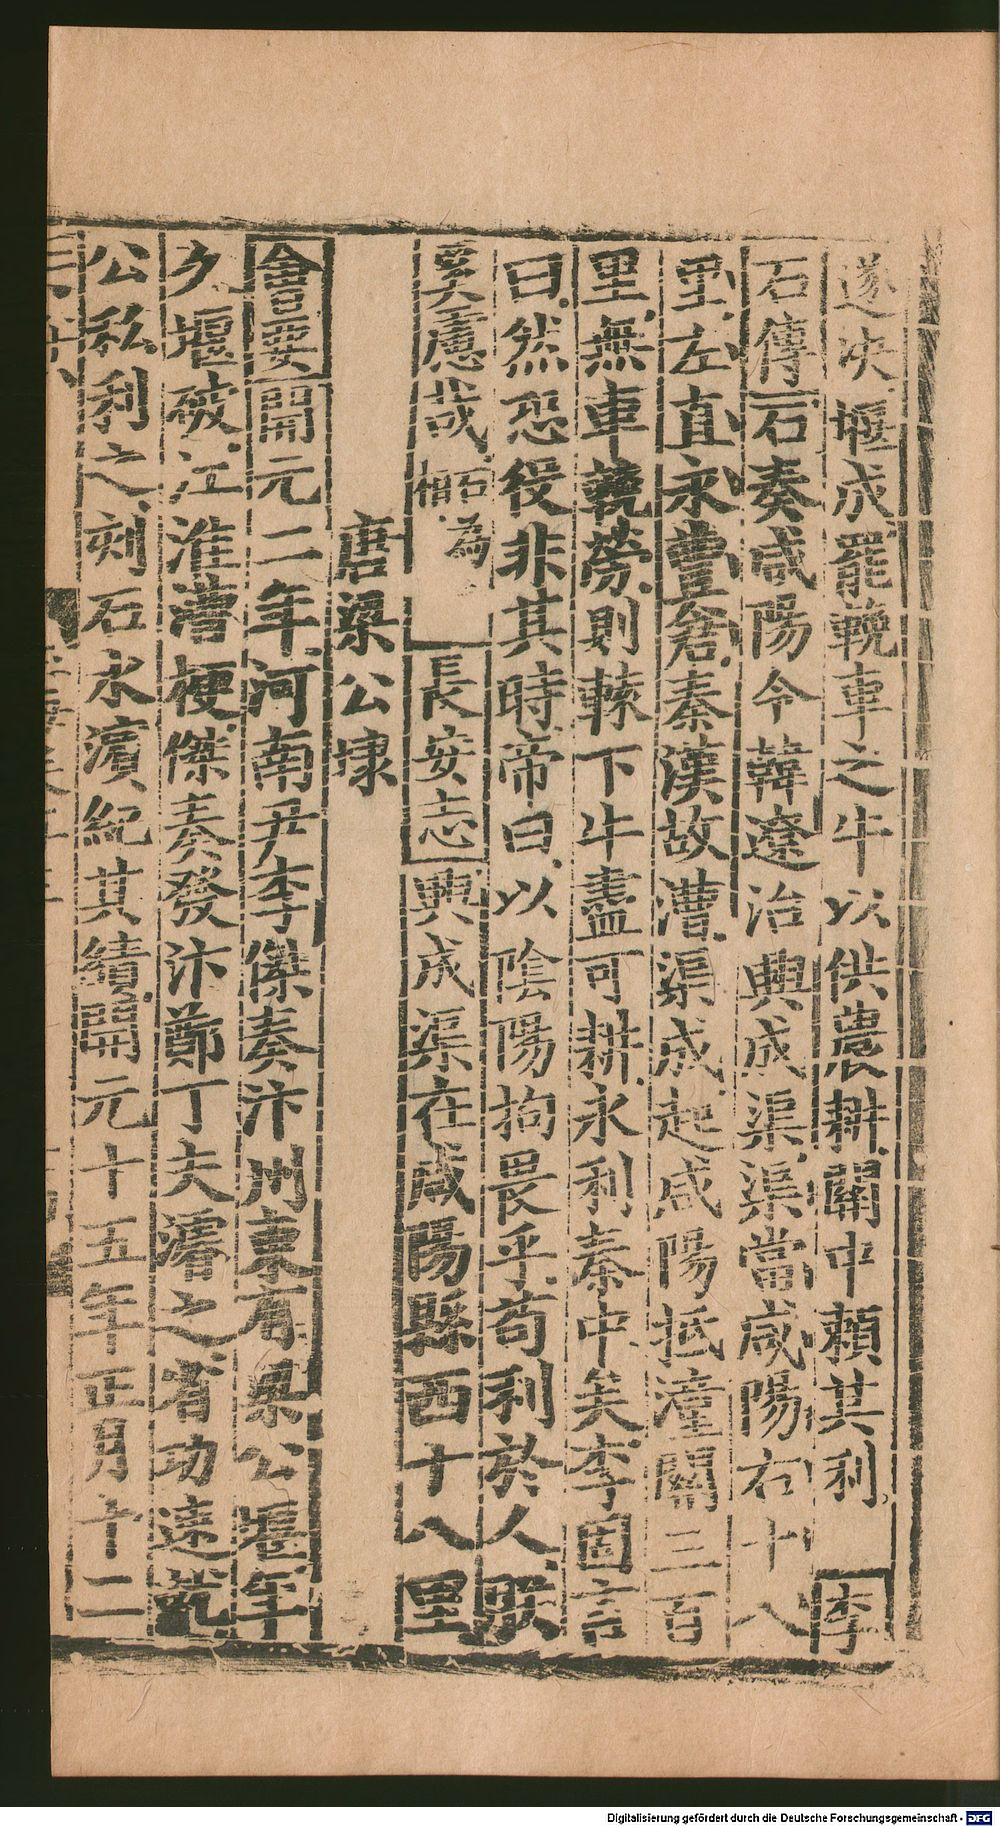 遂决堰成罷輓車之牛以供農耕關中賴其利李
石傳石奏咸陽令韓遼治興成渠渠當咸陽右十八
里左直永豐倉秦漢故漕渠成起咸陽抵潼關三百
里無車輓勞則轅下牛盡可耕永利秦中矣李固言
曰然恐役非其時帝曰以陰陽拘畏乎苟利於人朕
奚慮哉石為相長安志興成渠在咸陽縣西十八里
唐梁公埭
會要開元二年河南尹李傑奏汴州東有梁公堰年
久堰破江淮漕梗傑奏發汴鄭丁夫濬之省功速就
公私利之刻石水濱紀其績開元十五年正月十二
Digitalisierung gefördert durch die Deutsche Forschungsgemeinschaft - DFG